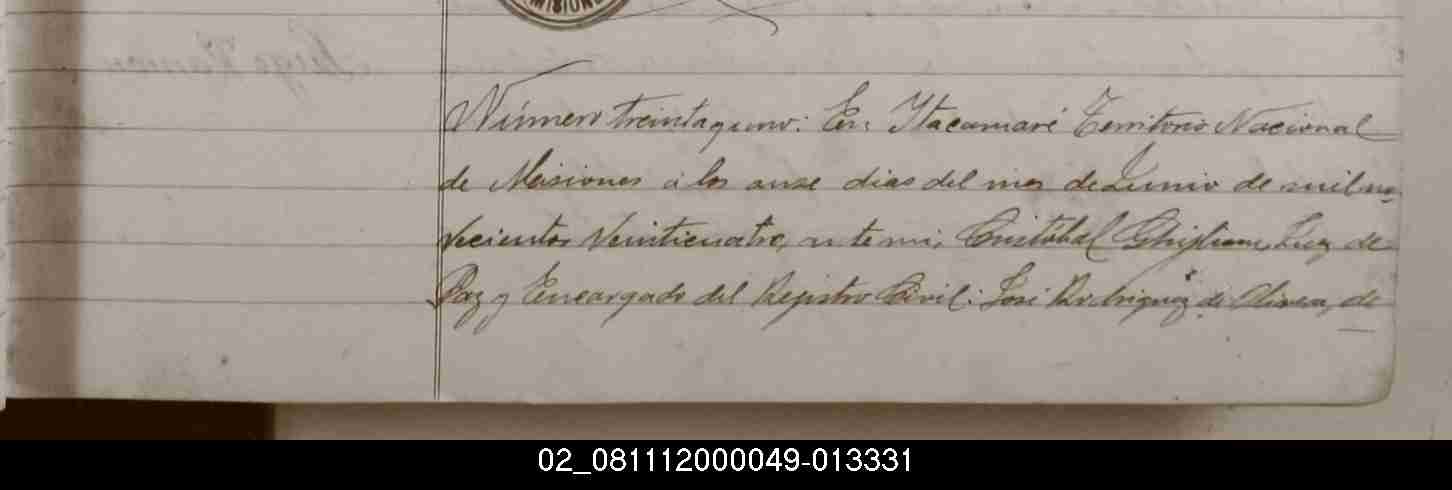 MISIONE
Número treinta y uno: En Itacaruaré Territorio Nacional
de Misiones á los onze dias del mes de Junio de mil no-
vecientos veinticuatro, ante mi, Cristóbal Juez de
Paz y Encargado del Registro Civil: José Rodriguez de Olivera, de
02_081112000049-013331